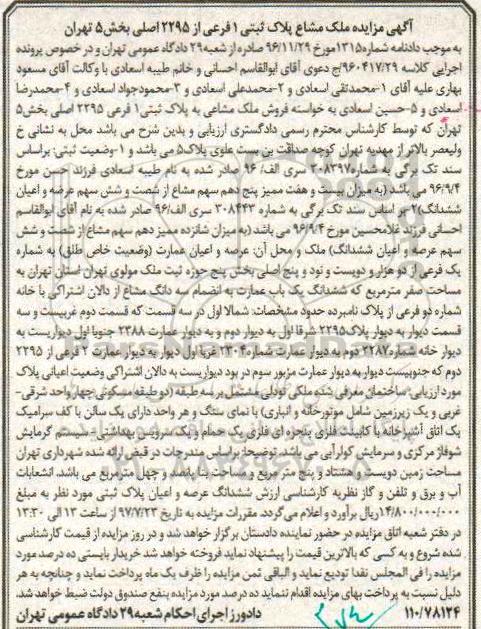 آگهی مزایده ملک مشاع پلاک ثبتی ۱ فرعی از ۲۲۹۵ اصلی بخش ۵ تهران
به موجب دادنامه شماره ۱۳۱۵ مورخ ۹۶/۱۱/۲۹ صادره از شعبه ۲۹ دادگاه عمومی تهران و در خصوص پرونده
اجرایی کلاسه ۹۶۰۴۱۷/۲۹/ج دعوی آقای ابوالقاسم احسانی و خانم طیبه اسعادی با وکالت آقای مسعود
بهاری علیه آقای ۱-محمدتقی اسعادی و ۲-محمدعلی اسعادی و ۳-محمودجواد اسعادی و ۴-محمدرضا
اسعادی و ۵-حسین اسعادی به خواسته فروش ملک مشاعی به پلاک ثبتی ۱ فرعی ۲۲۹۵ اصلی بخش ۵
تهران که توسط کارشناس محترم رسمی دادگستری ارزیابی و بدین شرح می باشد محل به نشانی خ
ولیعصر بالاتر از مهدیه تهران کوچه صداقت بن بست علوی پلاک ۵ می باشد و ۱-وضعیت ثبتی: براساس
سند تک برگی به شماره ۳۰۸۳۹۷ سری الف/ ۹۶ صادر شده به نام طیبه اسعادی فرزند حسن مورخ
۹۶/۹/۴ می باشد (به میزان بیست و هفت ممیز پنج دهم سهم مشاع از شصت و شش سهم عرصه و اعیان
ششدانگ) ۲-بر اساس سند تک برگی به شماره ۳۰۸۴۴۳ سری الف/۹۶ صادر شده به نام آقای ابوالقاسم
احسانی فرزند غلامحسین مورخ ۹۶/۹/۴ می باشد (به میزان شانزده ممیز دهم سهم مشاع از شصت و شش
سهم عرصه و اعیان ششدانگ) ملک و محل آن: عرصه و اعیان عمارت (وضعیت خاص طلق) به شماره
یک فرعی از دو هزار و دویست و نود و پنج اصلی بخش پنج حوزه ثبت ملک مولوی تهران استان تهران به
مساحت صفر مترمربع که ششدانگ یک باب عمارت به انضمام سه دانگ مشاع از دالان اشتراکی با خانه
شماره دو فرعی از پلاک نامبرده حدود مشخصات: شمالا اول در سه قسمت که قسمت دوم غربیست و سه
قسمت دیوار به دیوار پلاک ۲۲۹۵ شرقا اول به دیوار دوم و به دیوار عمارت ۲۳۸۸ جنوبا اول دیواریست به
دیوار خانه شماره ۲۲۸۷ دوم به دیوار عمارت شماره ۲۳۰۴ غربا اول دیوار به دیوار عمارت ۲ فرعی از ۲۲۹۵
دوم که جنوبیست دیوار به دیوار عمارت مزبور سوم در بود دیواریست به دالان اشتراکی وضعیت اعیانی پلاک
مورد ارزیابی: ساختمان معرفی شده ملکی دونبلی مشتمل بر سه طبقه (دو طبقه مسکونی چهار واحد شرقی-
غربی و یک زیرزمین شامل موتورخانه و انباری) با نمای سنگ و هر واحد دارای یک سالن با کف سرامیک
یک اتاق آشپزخانه با کابینت فلزی پنجره ای فلزی یک حمام و یک سرویس بهداشتی - سیستم گرمایش
شوفاژ مرکزی و سرمایش کولر آبی می باشد. توضیحا براساس مندرجات در قبض ارائه شده شهرداری تهران
مساحت زمین دویست و هشتاد و پنج متر مربع و مساحت بنا پانصد و چهل مترمربع می باشد. انشعابات
آب و برق و تلفن و گاز نظریه کارشناسی ارزش ششدانگ عرصه و اعیان پلاک ثبتی مورد نظر به مبلغ
۱۴/۸۰۰/۰۰۰/۰۰۰ ریال برآورد و اعلام می گردد. مقررات مزایده به تاریخ ۹۷/۷/۲۳ از ساعت ۱۳ الی ۱۳:۳۰
در دفتر شعبه اتاق مزایده در حضور نماینده دادستان برگزار خواهد شد و در روز مزایده از قیمت کارشناسی
شده شروع و به کسی که بالاترین قیمت را پیشنهاد نماید فروخته خواهد شد خریدار بایستی ده درصد مورد
مزایده را فی المجلس نقدا تودیع نماید و الباقی ثمن مزایده را ظرف یک ماه پرداخت نماید و چنانچه به هر
دلیل نسبت به پرداخت بهای مزایده اقدام ننماید ده درصد مورد مزایده بنفع صندوق دولت ضبط خواهد شد.
۱۱۰/۷۸۱۲۴ دادورز اجرای احکام شعبه ۲۹ دادگاه عمومی تهران